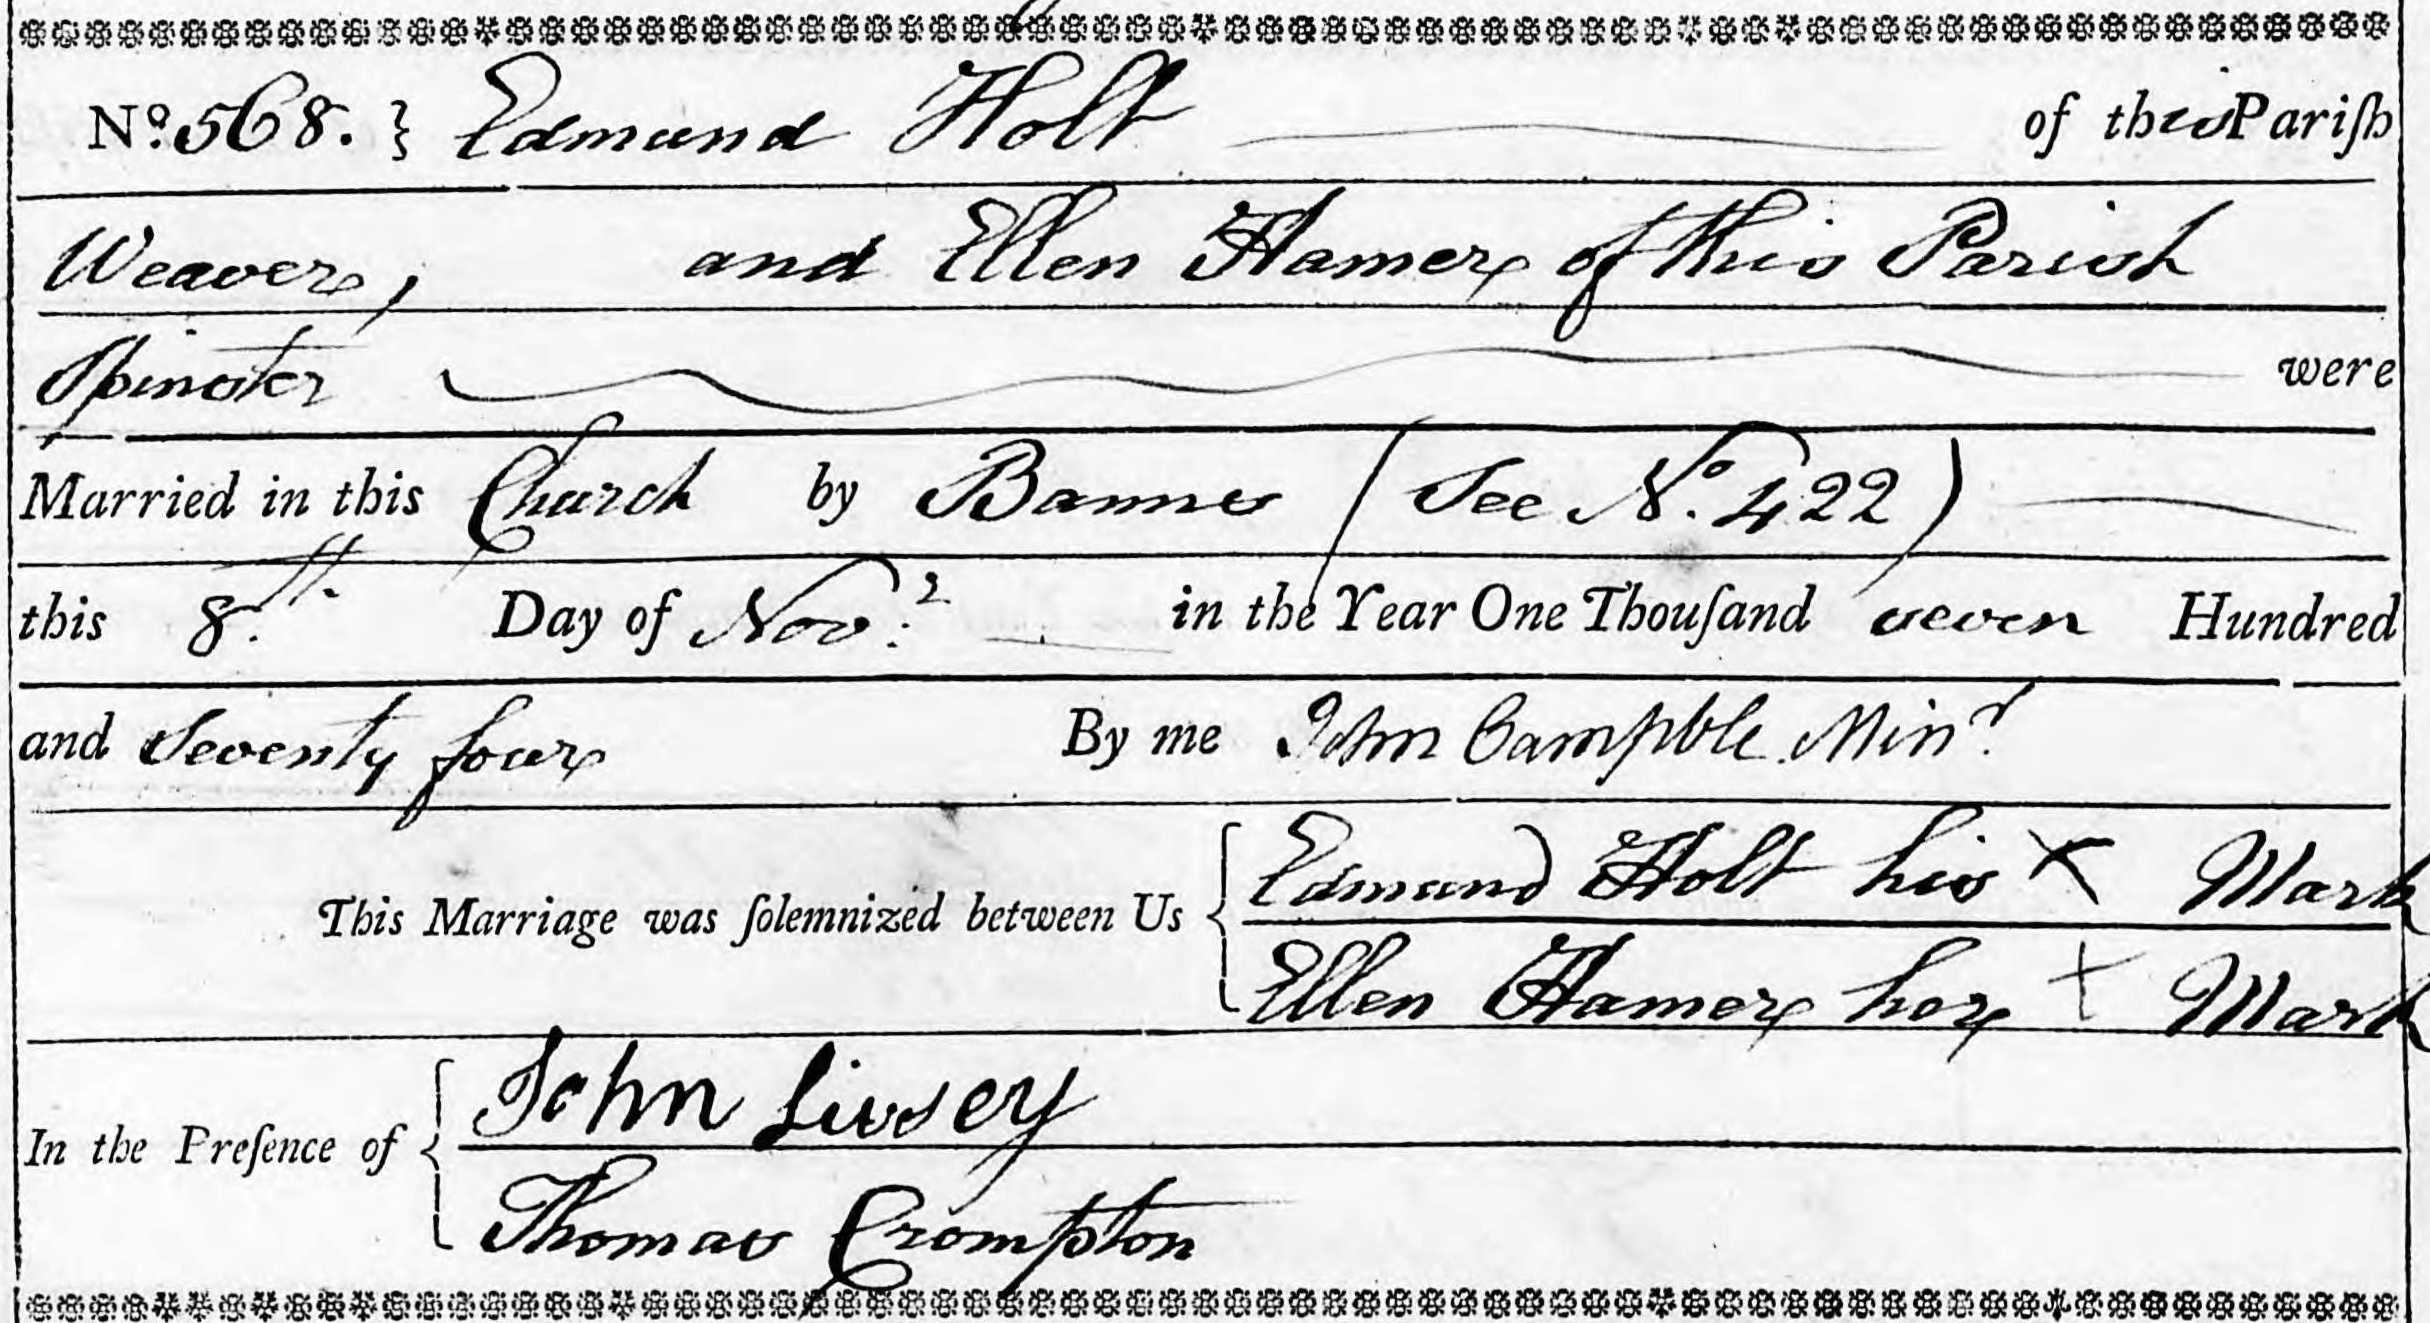 No. 568. } Edmund Holt of this Pariſh
Weaver, and Ellen Hamer of this Parish
Spinster were
Married in this Church by Bannes (See No. 422)
this 8.th Day of Nov:r in the Year One Thouſand seven Hundred
and Seventy four By me John Campble Minr
This Marriage was ſolemnized between Us { Edmund Holt his X Mark
Ellen Hamer her X Mark
In the Preſence of { John Livsey
Thomas Crompton